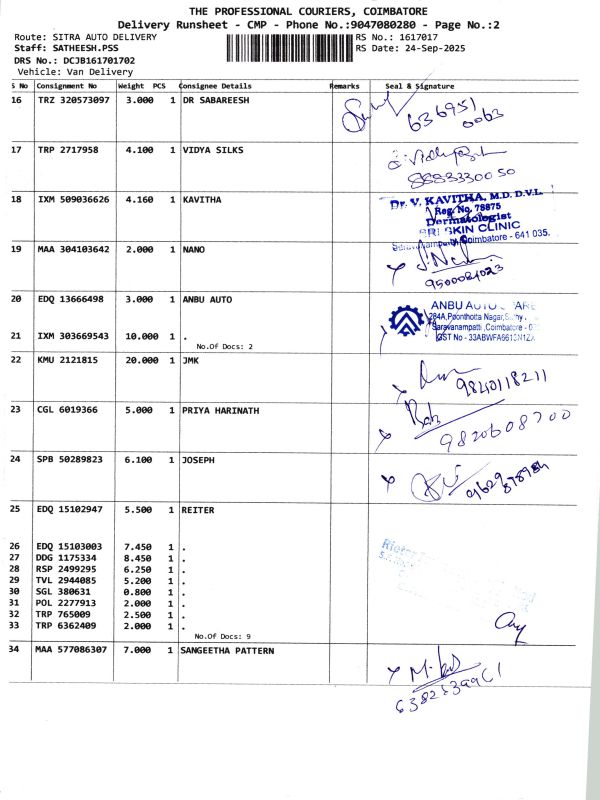 THE PROFESSIONAL COURIERS, COIMBATORE
Delivery Runsheet - CMP - Phone No.:9047080280 - Page No.:2
Route: SITRA AUTO DELIVERY RS No.: 1617017
Staff: SATHEESH.PSS RS Date: 24-Sep-2025
DRS No.: DCJB161701702
Vehicle: Van Delivery
S No Consignment No Weight PCS Consignee Details Remarks Seal & Signature
16 TRZ 320573097 3.000 1 DR SABAREESH
636951
0063
17 TRP 2717958 4.100 1 VIDYA SILKS
8883330050
18 IXM 509036626 4.160 1 KAVITHA
Dr. V. KAVITHA, M.D. D.V.L.
Reg. No. 78875
Dermatologist
SRI SKIN CLINIC
Coimbatore - 641 035.
19 MAA 304103642 2.000 1 NANO
20 EDQ 13666498 3.000 1 ANBU AUTO
ANBU AUTO
284A, Poonthotta Nagar,
Saravanampatti, Coimbatore -
GST No - 33ABWFA6613N1Z
21 IXM 303669543 10.000 1 .
No.Of Docs: 2
22 KMU 2121815 20.000 1 JMK
9840118211
23 CGL 6019366 5.000 1 PRIYA HARINATH
9820608700
24 SPB 50289823 6.100 1 JOSEPH
25 EDQ 15102947 5.500 1 REITER
26 EDQ 15103003 7.450 1 .
27 DDG 1175334 8.450 1 .
28 RSP 2499295 6.250 1 .
29 TVL 2944085 5.200 1 .
30 SGL 380631 0.800 1 .
31 POL 2277913 2.000 1 .
32 TRP 765009 2.500 1 .
33 TRP 6362409 2.000 1 .
No.Of Docs: 9
34 MAA 577086307 7.000 1 SANGEETHA PATTERN